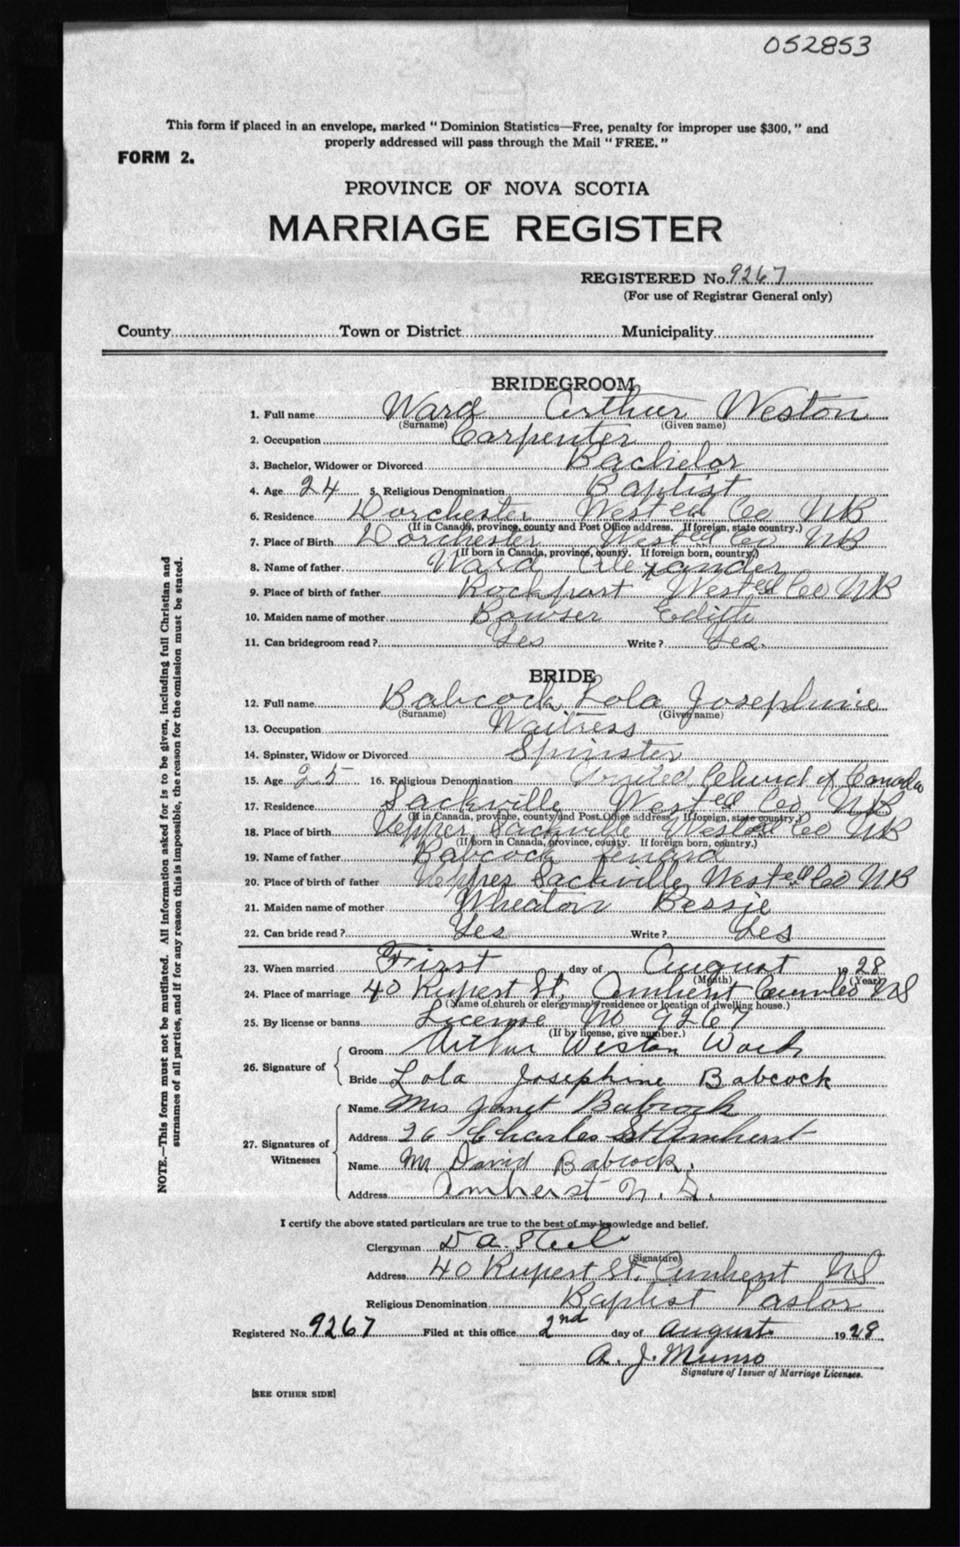 052853
This form if placed in an envelope, marked " Dominion Statistics—Free, penalty for improper use $300, " and
properly addressed will pass through the Mail " FREE. "
FORM 2.
PROVINCE OF NOVA SCOTIA
MARRIAGE REGISTER
REGISTERED No. 9267
(For use of Registrar General only)
County Town or District Municipality
BRIDEGROOM
1. Full name Ward Arthur Weston
(Surname) (Given name)
2. Occupation Carpenter
3. Bachelor, Widower or Divorced Bachelor
4. Age 24 5. Religious Denomination Baptist
6. Residence Dorchester West'ed Co NB
(If in Canada, province, county and Post Office address. If foreign, state country.)
7. Place of Birth Dorchester West'ed Co NB
(If born in Canada, province, county. If foreign born, country.)
8. Name of father Ward Alexander
9. Place of birth of father Rockport West'ed Co NB
10. Maiden name of mother Bowser Edith
11. Can bridegroom read? Yes Write? Yes.
BRIDE
12. Full name Babcock, Lola Josephine
(Surname) (Given name)
13. Occupation Waitress
14. Spinster, Widow or Divorced Spinster
15. Age 25 16. Religious Denomination United Church of Canada
17. Residence Sackville West'ed Co NB
(If in Canada, province, county and Post Office address. If foreign, state country.)
18. Place of birth Upper Sackville West'ed Co NB
(If born in Canada, province, county. If foreign born, country.)
19. Name of father Babcock
20. Place of birth of father Upper Sackville, West'ed Co NB
21. Maiden name of mother Wheaton Bessie
22. Can bride read? Yes Write? Yes
23. When married First day of August 1928
(Month) (Year)
24. Place of marriage 40 Rupert St. Amherst Cumb Co NS
(Name of church or clergyman's residence or location of dwelling house.)
25. By license or banns License No 9267
(If by license, give number.)
26. Signature of
Groom Arthur Weston Ward
Bride Lola Josephine Babcock
27. Signatures of Witnesses
Name Mrs Janet Babcock
Address 26 Charles St Amherst
Name Mr David Babcock.
Address Amherst N. S.
I certify the above stated particulars are true to the best of my knowledge and belief.
Clergyman D A. Steele
(Signature)
Address 40 Rupert St. Amherst NS
Religious Denomination Baptist Pastor
Registered No. 9267 Filed at this office 2nd day of August 1928
A. J. Munro
Signature of Issuer of Marriage Licenses.
[SEE OTHER SIDE]
NOTE.—This form must not be mutilated. All information asked for is to be given, including full Christian and
surnames of all parties, and if for any reason this is impossible, the reason for the omission must be stated.